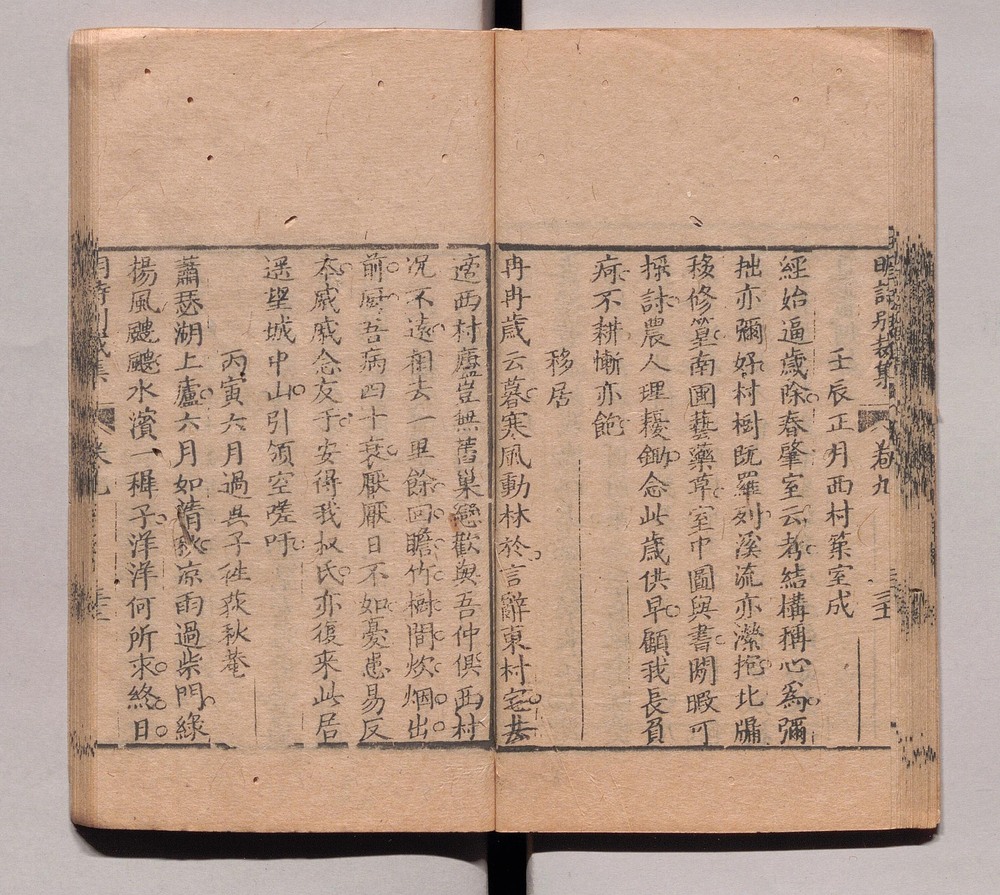 明詩別裁集 卷九
壬辰正月西村築室成
經始逼歲除春肇室云考結構稱心為彌
拙亦彌好村樹既羅列溪流亦瀠抱北牖
移修篁南圃藝藥草室中圖與書閒暇可
探討農人理耰鋤念此歲供早顧我長負
疴不耕慚亦飽
移居
冉冉歲云暮寒風動林於言辭東村宅去
適西村廬豈無舊巢戀歡與吾仲俱西村
況不遠相去一里餘回瞻竹樹間炊烟出
前廚吾病四十衰厭厭日不如憂患易反
本戚戚念友于安得我叔氏亦復來此居
遥望城中山引領空嗟吁
丙寅六月過吳子荻秋菴
蕭瑟湖上廬六月如清秋凉雨過柴門綠
楊風颼颼水濱一穉子洋洋何所求終日